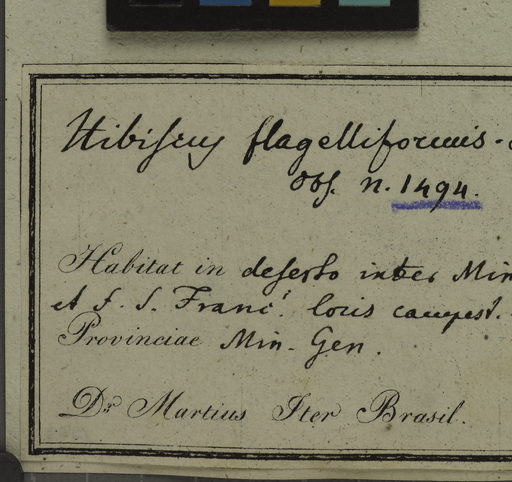 Hibiscus flagelliformis -
Obs. n. 1494.
Habitat in deserto inter Min
et f. S. Franc. locis campest.
Provinciae Min. Gen.
Dr. Martius Iter Brasil.